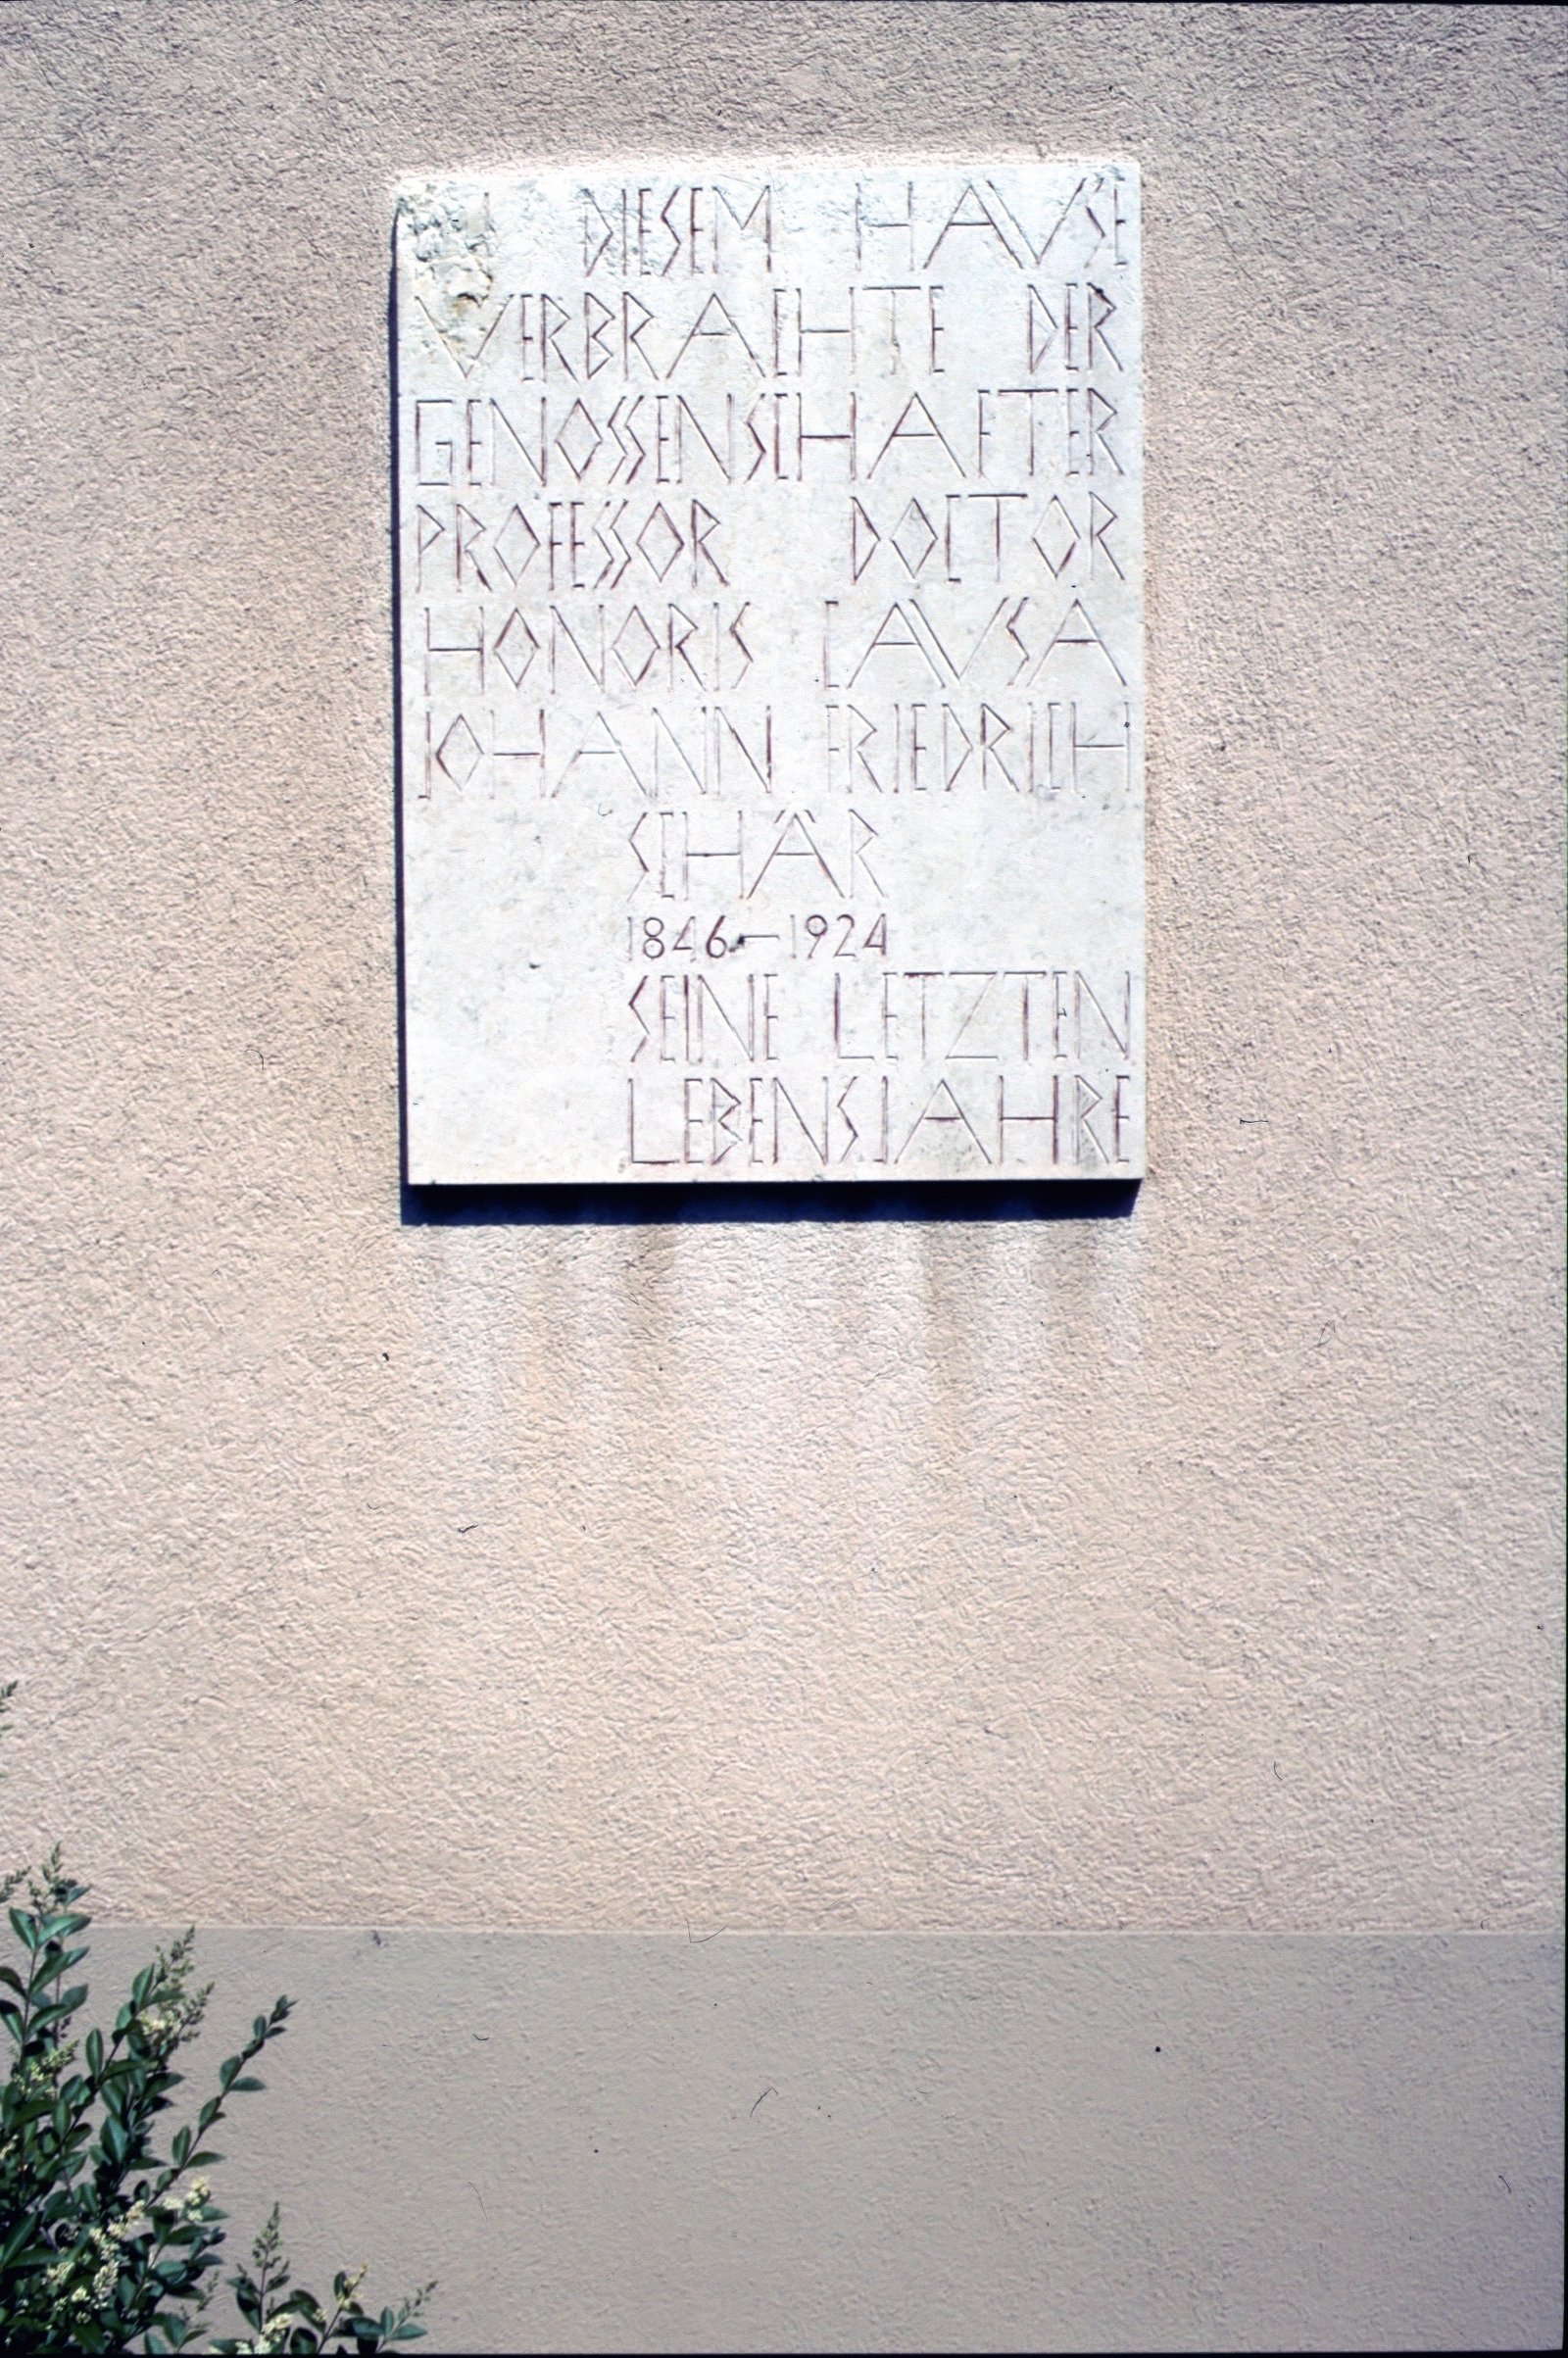 DIESEM HAVSE
VERBRACHTE DER
GENOSSENSCHAFTER
PROFESSOR DOCTOR
HONORIS CAVSA
JOHANN FRIEDRICH
SCHÄR
1846–1924
SEINE LETZTEN
LEBENSJAHRE